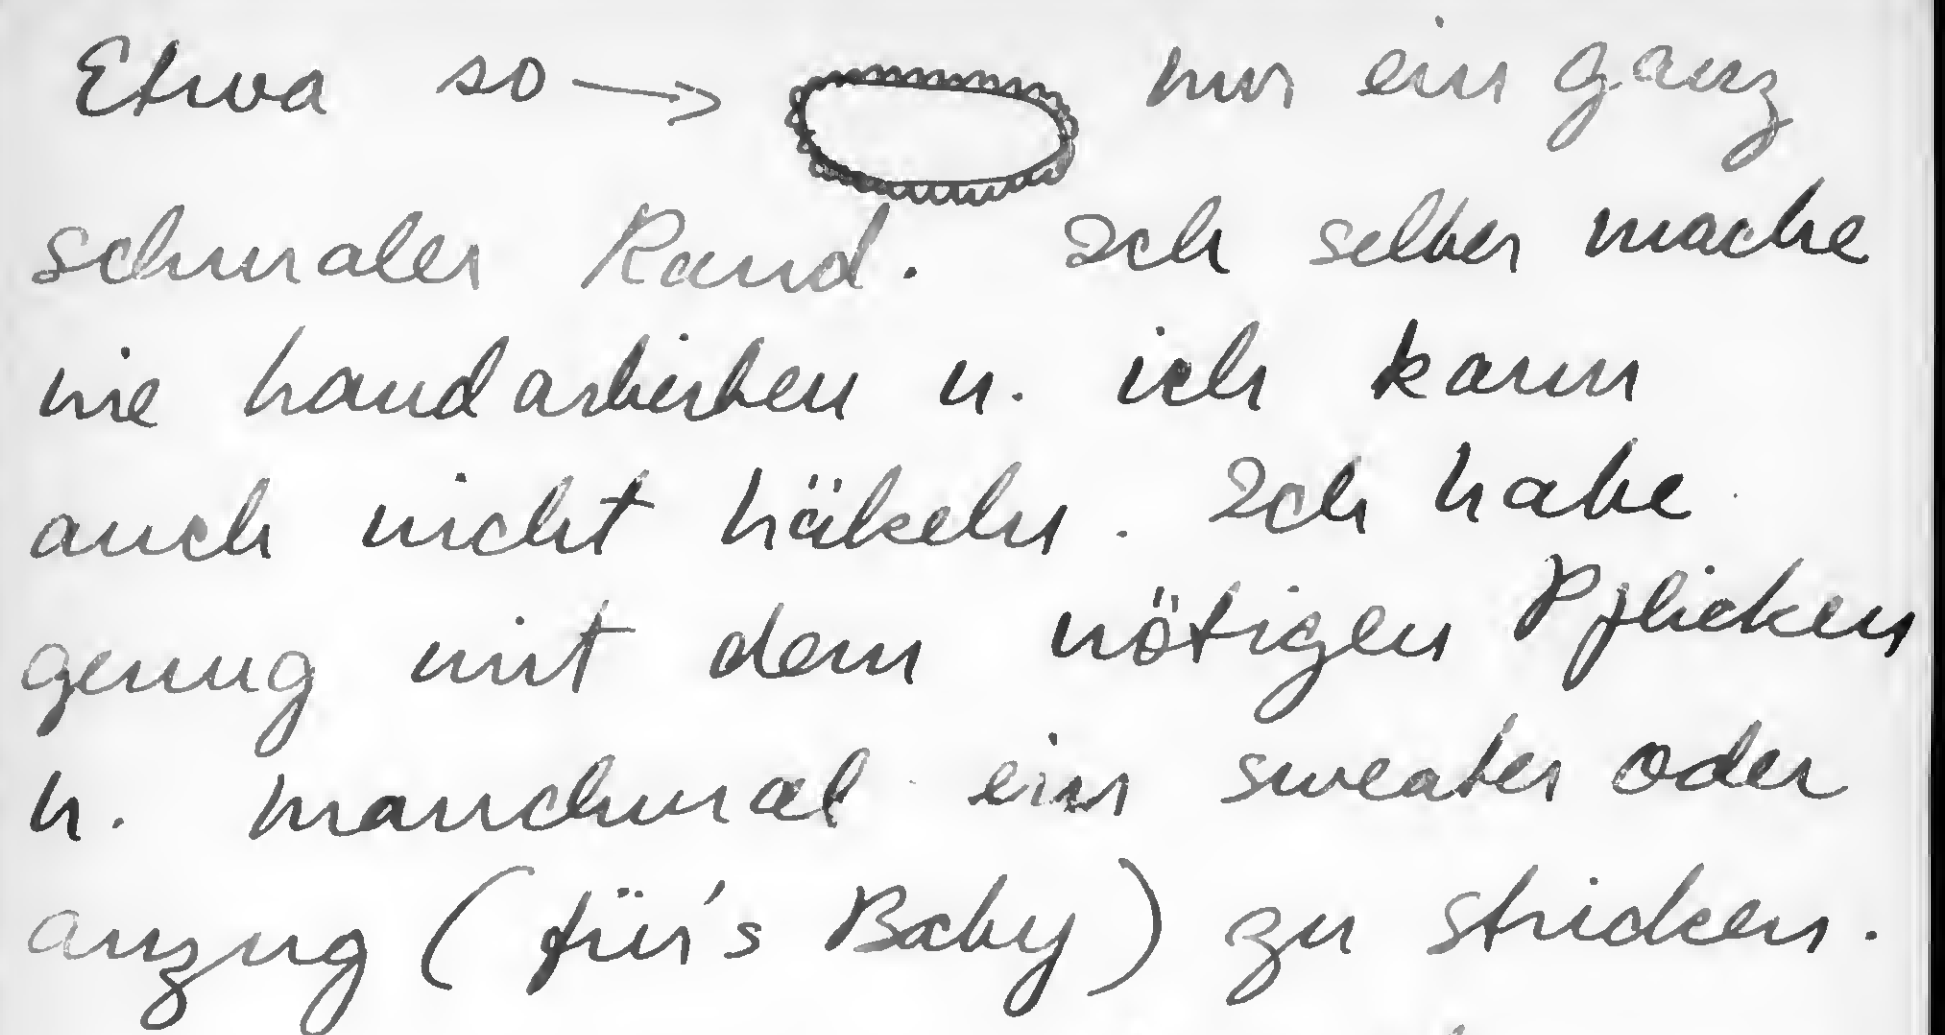 Etwa so → nur ein ganz
schmaler Rand. Ich selber mache
nie handarbeiten u. ich kann
auch nicht häkeln. Ich habe
genug mit dem nötigen Pflicken
u. manchmal ein sweater oder
anzug (für's Baby) zu stricken.